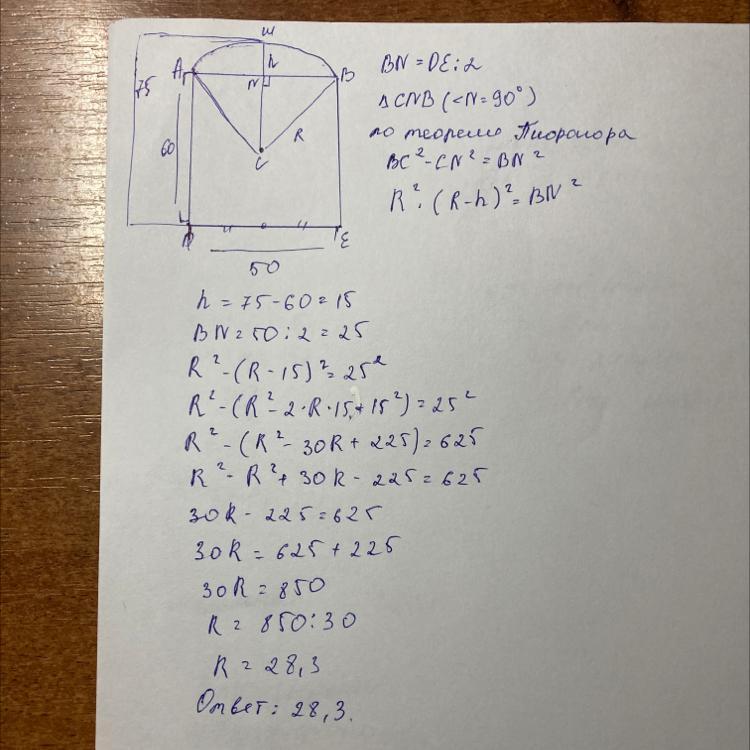 ш
A h B
75 N
R
60
C
E
50
BN = DE : 2
△CNB (<N = 90°)
по теореме Пифагора
BC² - CN² = BN²
R² - (R-h)² = BN²
h = 75 - 60 = 15
BN = 50 : 2 = 25
R² - (R - 15)² = 25²
R² - (R² - 2·R·15 + 15²) = 25²
R² - (R² - 30R + 225) = 625
R² - R² + 30R - 225 = 625
30R - 225 = 625
30R = 625 + 225
30R = 850
R = 850 : 30
R = 28,3
Ответ: 28,3.